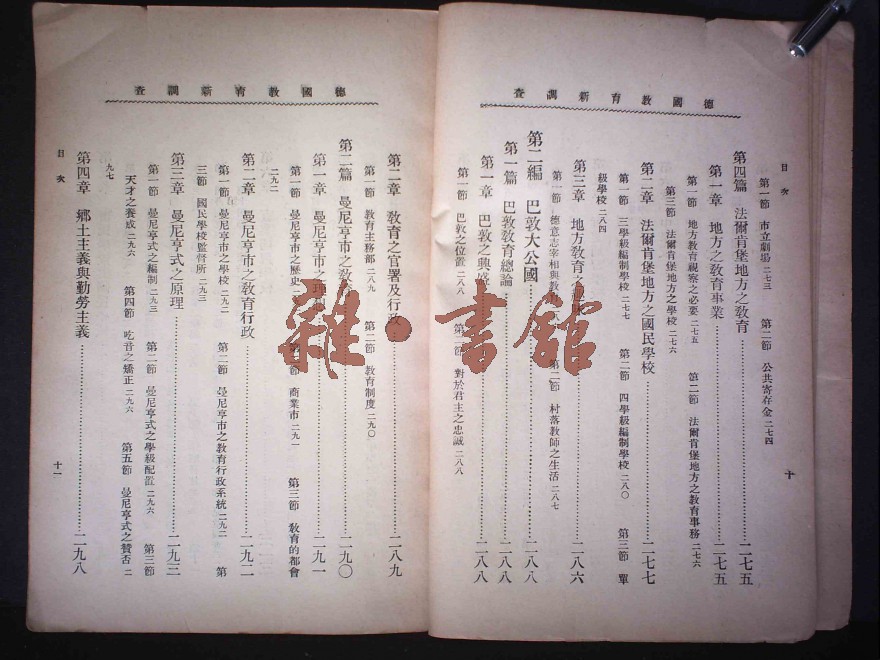 德國教育新調查
目次
十
第一節 市立劇場二七三 第二節 公共寄存金二七四
第四篇 法爾肯堡地方之教育……二七五
第一章 地方之教育事業……二七五
第一節 地方教育視察之必要二七五 第二節 法爾肯堡地方之教育事務二七六
第三節 法爾肯堡地方之學校二七六
第二章 法爾肯堡地方之國民學校……二七七
第一節 三學級編制學校二七七 第二節 四學級編制學校二八〇 第三節 單
級學校二八四
第三章 地方教育之……二八六
第一節 德意志宰相與教 第二節 村落教師之生活二八七
第二編 巴敦大公國……二八八
第一篇 巴敦教育總論……二八八
第一章 巴敦之興……二八八
第一節 巴敦之位置二八八 第二節 對於君主之忠誠二八八
德國教育新調查
第二章 教育之官署及行政……二八九
第一節 教育主務部二八九 第二節 教育制度二九〇
第二篇 曼尼亨市之教……二九〇
第一章 曼尼亨市之……二九一
第一節 曼尼亨市之歷史 商業市二九一 第三節 教育的都會
二九二
第二章 曼尼亨市之教育行政……二九二
第一節 曼尼亨市之學校二九二 第二節 曼尼亨市之教育行政系統二九二 第
三節 國民學校監督所二九三
第三章 曼尼亨式之原理……二九三
第一節 曼尼亨式之編制二九三 第二節 曼尼亨式之學級配置二九六 第三節
天才之養成二九六 第四節 吃音之矯正二九六 第五節 曼尼亨式之贊否二
九七
第四章 鄉土主義與勤勞主義……二九八
目次
十一
雜·書館